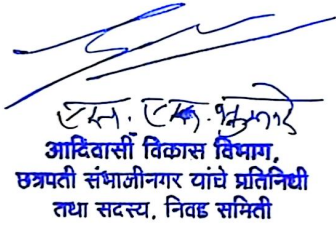 एस. एस.
आदिवासी विकास विभाग,
छत्रपती संभाजीनगर यांचे प्रतिनिधी
तथा सदस्य, निवड समिती